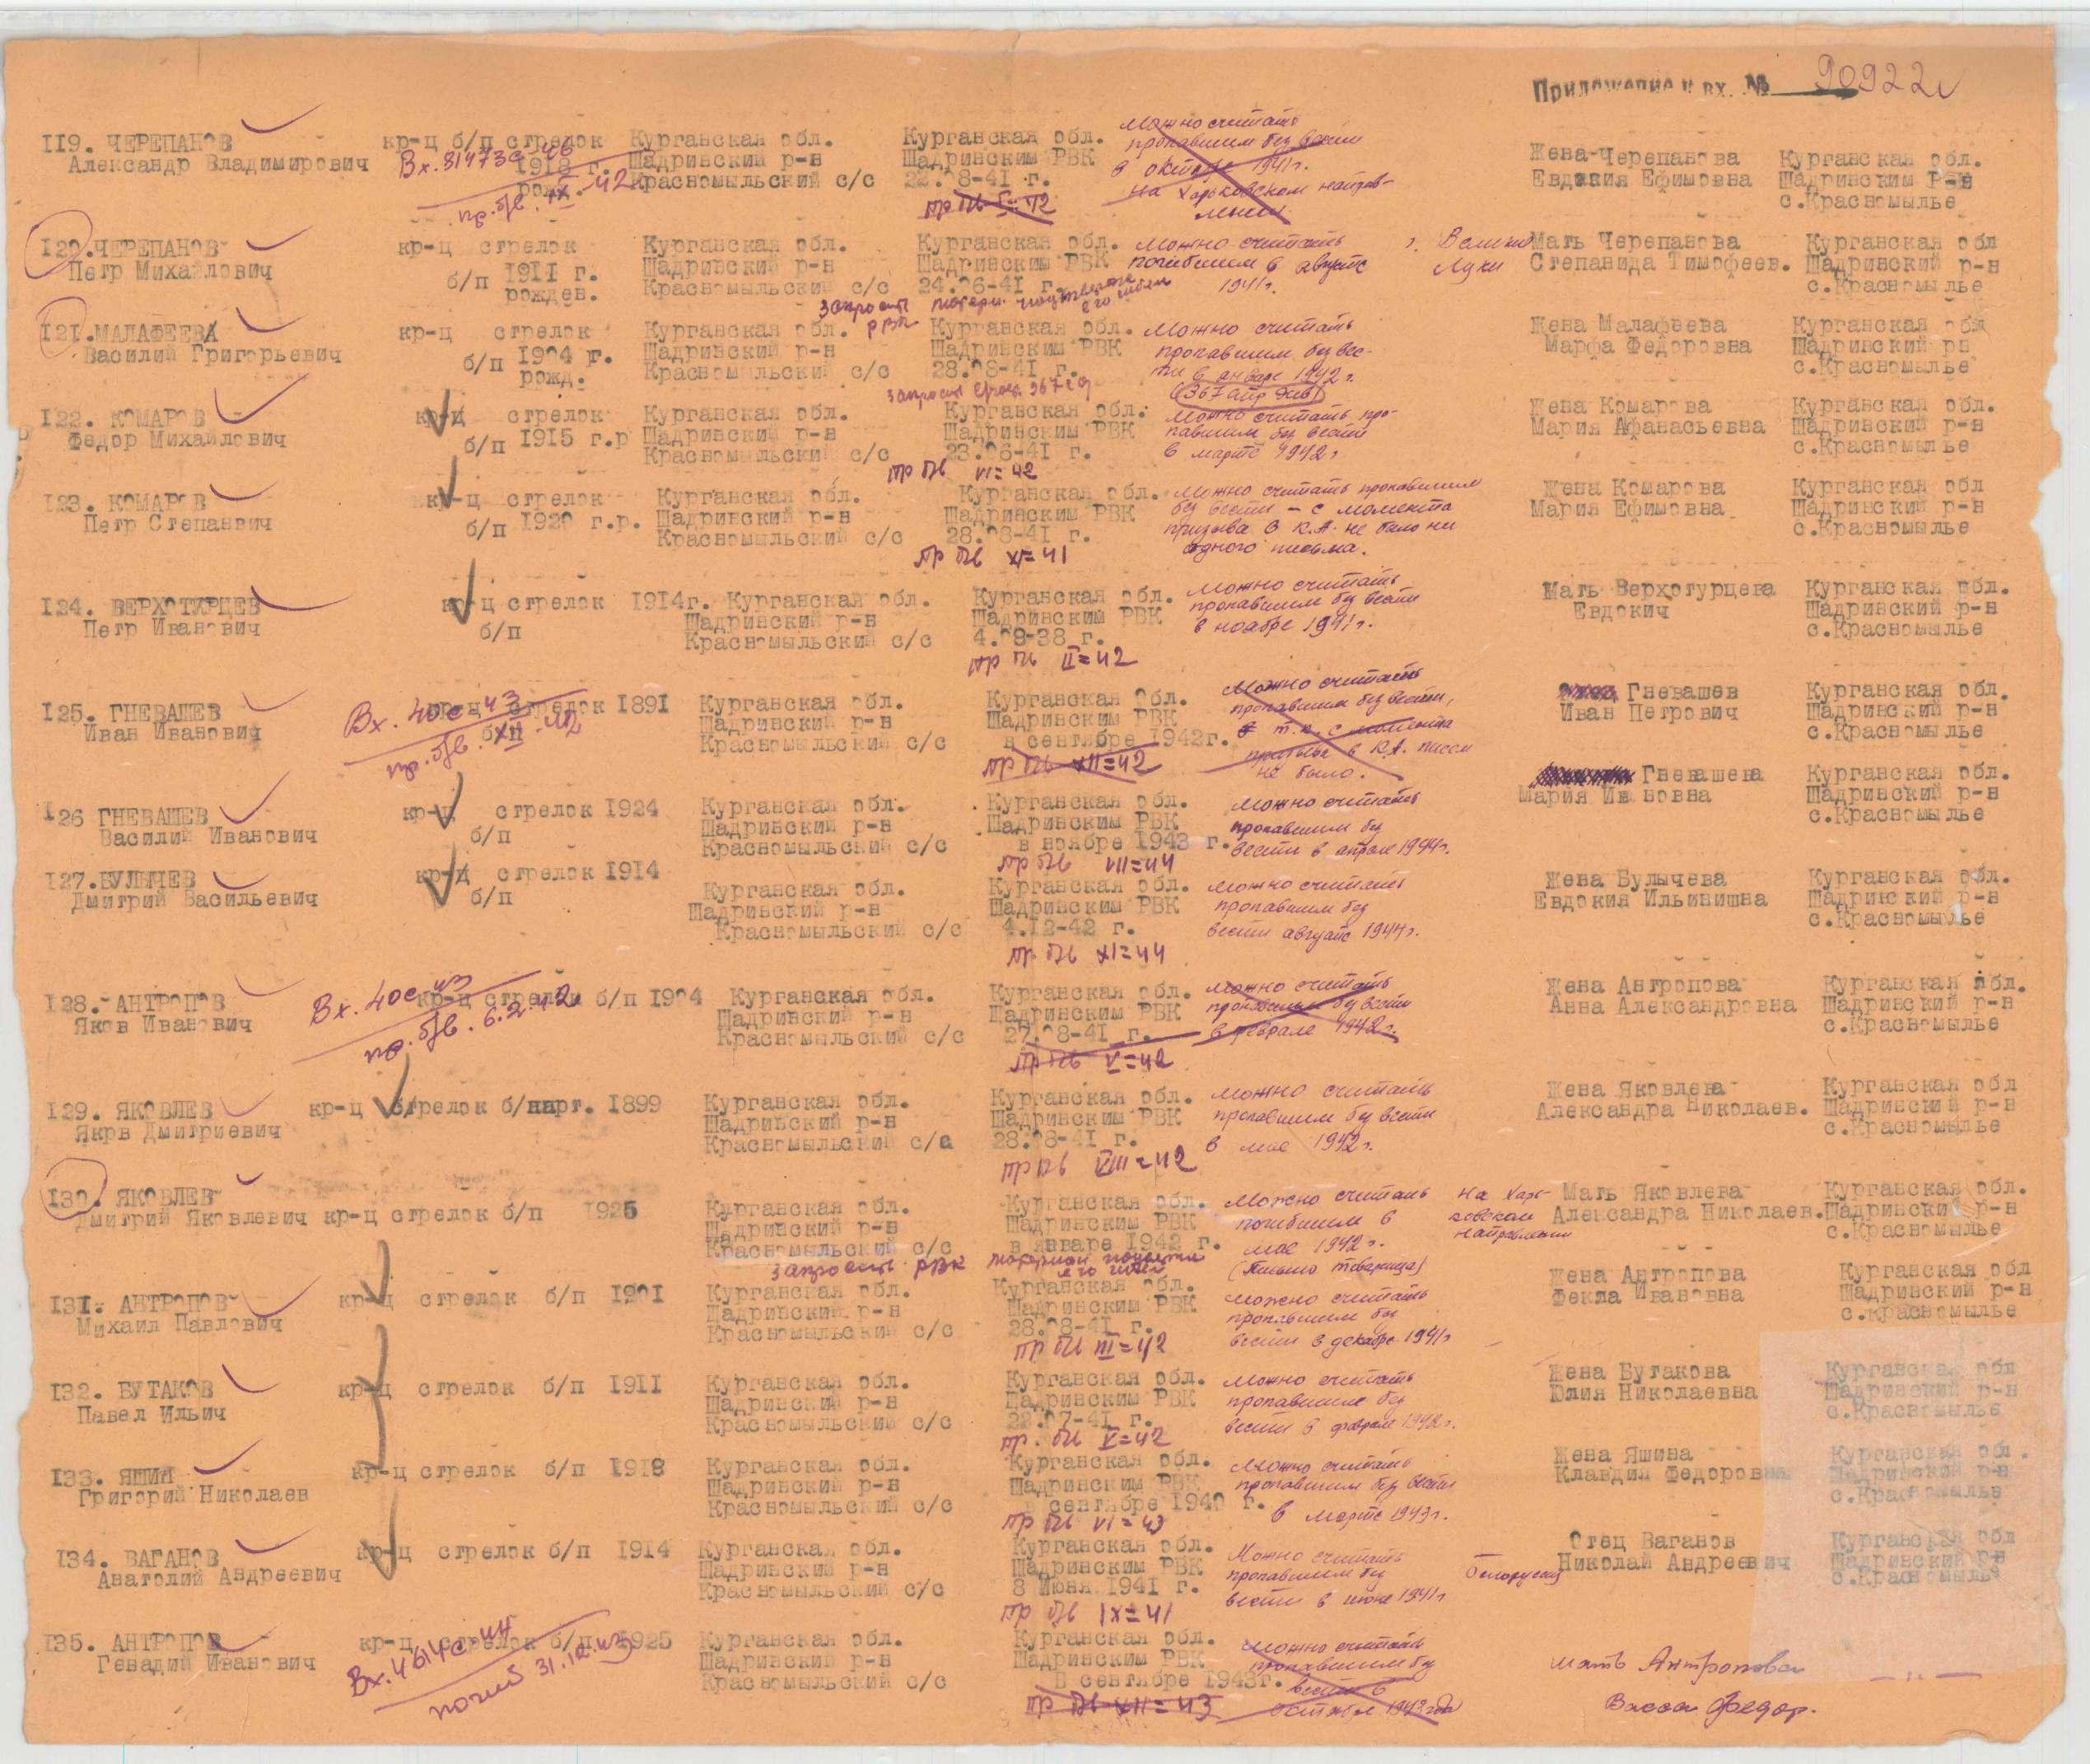 Приложение к вх. № 90922с
119. ЧЕРЕПАНОВ кр-ц б/п стрелок Курганская обл. Курганская обл. Можно считать
Александр Владимирович 1918 г. Шадринский р-н Шадринским РВК пропавшим без вести Жена Черепанова Курганская обл.
рожд. Красномыльский с/с 22.08-41 г. в октябре 1941г. Евдокия Ефимовна Шадринским Р-н
Вх. 81473с-46 на Харьковском направ- с.Красномылье
пр. б/в. IX-42 пр бв I=42 лении
120.ЧЕРЕПАНОВ кр-ц стрелок Курганская обл. Курганская обл. Можно считать г. Великие Мать Черепанова Курганская обл
Петр Михайлович б/п 1911 г. Шадринский р-н Шадринским РВК погибшим в августе Луки Степанида Тимофеев. Шадринский р-н
рожден. Красномыльский с/с 24.06-41 г. 1941г. с.Красномылье
запросить РВК его гибели
121.МАЛАФЕЕВА кр-ц стрелок Курганская обл. Курганская обл. Можно считать Жена Малафеева Курганская обл
Василий Григорьевич б/п 1904 г. Шадринский р-н Шадринским РВК пропавшим без вес- Марфа Федоровна Шадринский рн
рожд. Красномыльский с/с 28.08-41 г. ти в январе 1942г. с.Красномылье
запросить 367 сд
122. КОМАРОВ кр-ц стрелок Курганская обл. Курганская обл. Можно считать про- Жена Комарова Курганская обл.
Федор Михайлович б/п 1915 г.р Шадринский р-н Шадринским РВК павшим без вести Мария Афанасьевна Шадринский р-н
Красномыльский с/с 23.06-41 г. в марте 1942г. с.Красномылье
пр бв VI=42
123. КОМАРОВ кр-ц стрелок Курганская обл. Курганская обл. Можно считать пропавшим Жена Комарова Курганская обл
Петр Степанвич б/п 1920 г.р. Шадринский р-н Шадринским РВК без вести - с момента Мария Ефимовна Шадринский р-н
Красномыльский с/с 28.08-41 г. призыва в К.А. не было ни с.Красномылье
пр бв XI=41 одного письма.
124. ВЕРХОТИРЦЕВ кр-ц стрелок 1914г. Курганская обл. Курганская обл. Можно считать Мать Верхотурцева Курганская обл.
Петр Иванович б/п Шадринский р-н Шадринским РВК пропавшим без вести Евдокич Шадринский р-н
Красномыльский с/с 4.09-38 г. в ноябре 1941г. с.Красномылье
пр бв II=42
125. ГНЕВАШЕВ кр-ц стрелок 1891 Курганская обл. Курганская обл. Можно считать Гневашев Курганская обл.
Иван Иванович б/п Шадринский р-н Шадринским РВК пропавшим без вести, Иван Петрович Шадринский р-н
Красномыльский с/с в сентябре 1942г. т.к. с момента с.Красномылье
Вх. 40с-43 призыва в К.А. писем
пр. б/в. XII-42 пр бв XII=42 не было.
126 ГНЕВАШЕВ кр-ц стрелок 1924 Курганская обл. Курганская обл. Можно считать Гневашева Курганская обл.
Василий Иванович б/п Шадринский р-н Шадринским РВК пропавшим без Мария Ивановна Шадринский р-н
Красномыльский с/с в ноябре 1943 г. вести в апреле 1944г. с.Красномылье
пр бв VII=44
127.БУЛЫЧЕВ кр-ц стрелок 1914 Курганская обл. Курганская обл. Можно считать Жена Булычева Курганская обл.
Дмитрий Васильевич б/п Шадринский р-н Шадринским РВК пропавшим без Евдокия Ильинишна Шадринский р-н
Красномыльский с/с 4.12-42 г. вести августе 1944г. с.Красномылье
пр бв XI=44
128. АНТРОПОВ кр-ц стрелок б/п 1904 Курганская обл. Курганская обл. Можно считать Жена Антропова Курганская обл.
Яков Иванович Шадринский р-н Шадринским РВК пропавшим без вести Анна Александровна Шадринский р-н
Красномыльский с/с 27.08-41 г. в феврале 1942г. с.Красномылье
Вх. 40с-43
пр. б/в. 6.2.42 пр бв V=42
129. ЯКОВЛЕВ кр-ц стрелок б/парт. 1899 Курганская обл. Курганская обл. Можно считать Жена Яковлева Курганская обл
Яков Дмитриевич Шадринский р-н Шадринским РВК пропавшим без вести Александра Николаев. Шадринский р-н
Красномыльский с/а 28.08-41 г. в мае 1942г. с.Красномылье
пр бв VIII=42
130. ЯКОВЛЕВ Курганская обл. Курганская обл. Можно считать на Харь- Мать Яковлева Курганская обл.
Дмитрий Яковлевич кр-ц стрелок б/п 1925 Шадринский р-н Шадринским РВК погибшим в ковском Александра Николаев. Шадринский р-н
Красномыльский с/с в январе 1942 г. мае 1942г. направлении с.Красномылье
запросить РВК его гибели (Письмо товарища)
131. АНТРОПОВ кр-ц стрелок б/п 1901 Курганская обл. Курганская обл. Можно считать Жена Антропова Курганская обл
Михаил Павлович Шадринский р-н Шадринским РВК пропавшим без Фекла Ивановна Шадринский р-н
Красномыльский с/с 28.08-41 г. вести в декабре 1941г с.Красномылье
пр бв III=42
132. БУТАКОВ кр-ц стрелок б/п 1911 Курганская обл. Курганская обл. Можно считать Жена Бутакова Курганская обл
Павел Ильич Шадринский р-н Шадринским РВК пропавшим без Юлия Николаевна Шадринский р-н
Красномыльский с/с 22.07-41 г. вести в феврале 1942г. с.Красномылье
пр. бв V=42
133. ЯШИН кр-ц стрелок б/п 1918 Курганская обл. Курганская обл. Можно считать Жена Яшина Курганская обл.
Григорий Николаев Шадринский р-н Шадринским РВК пропавшим без вести Клавдия Федоровна Шадринский р-н
Красномыльский с/с в сентябре 1940 г. в марте 1943г. с.Красномылье
пр бв VI=43
134. ВАГАНОВ кр-ц стрелок б/п 1914 Курганская обл. Курганская обл. Можно считать Отец Ваганов Курганская обл
Анатолий Андреевич Шадринский р-н Шадринским РВК пропавшим без Белоруссия Николай Андреевич Шадринский р-н
Красномыльский с/с 8 Июня 1941 г. вести в июне 1941г с.Красномылье
пр бв IX=41
135. АНТРОПОВ кр-ц стрелок б/п 1925 Курганская обл. Курганская обл. Можно считать мать Антропова -"-
Генадий Иванович Шадринский р-н Шадринским РВК пропавшим без Васса Федор.
Красномыльский с/с В сентябре 1943г. вести в
Вх. 4614с-44 октябре 1943 года
погиб 31.12.43 пр бв XII=43